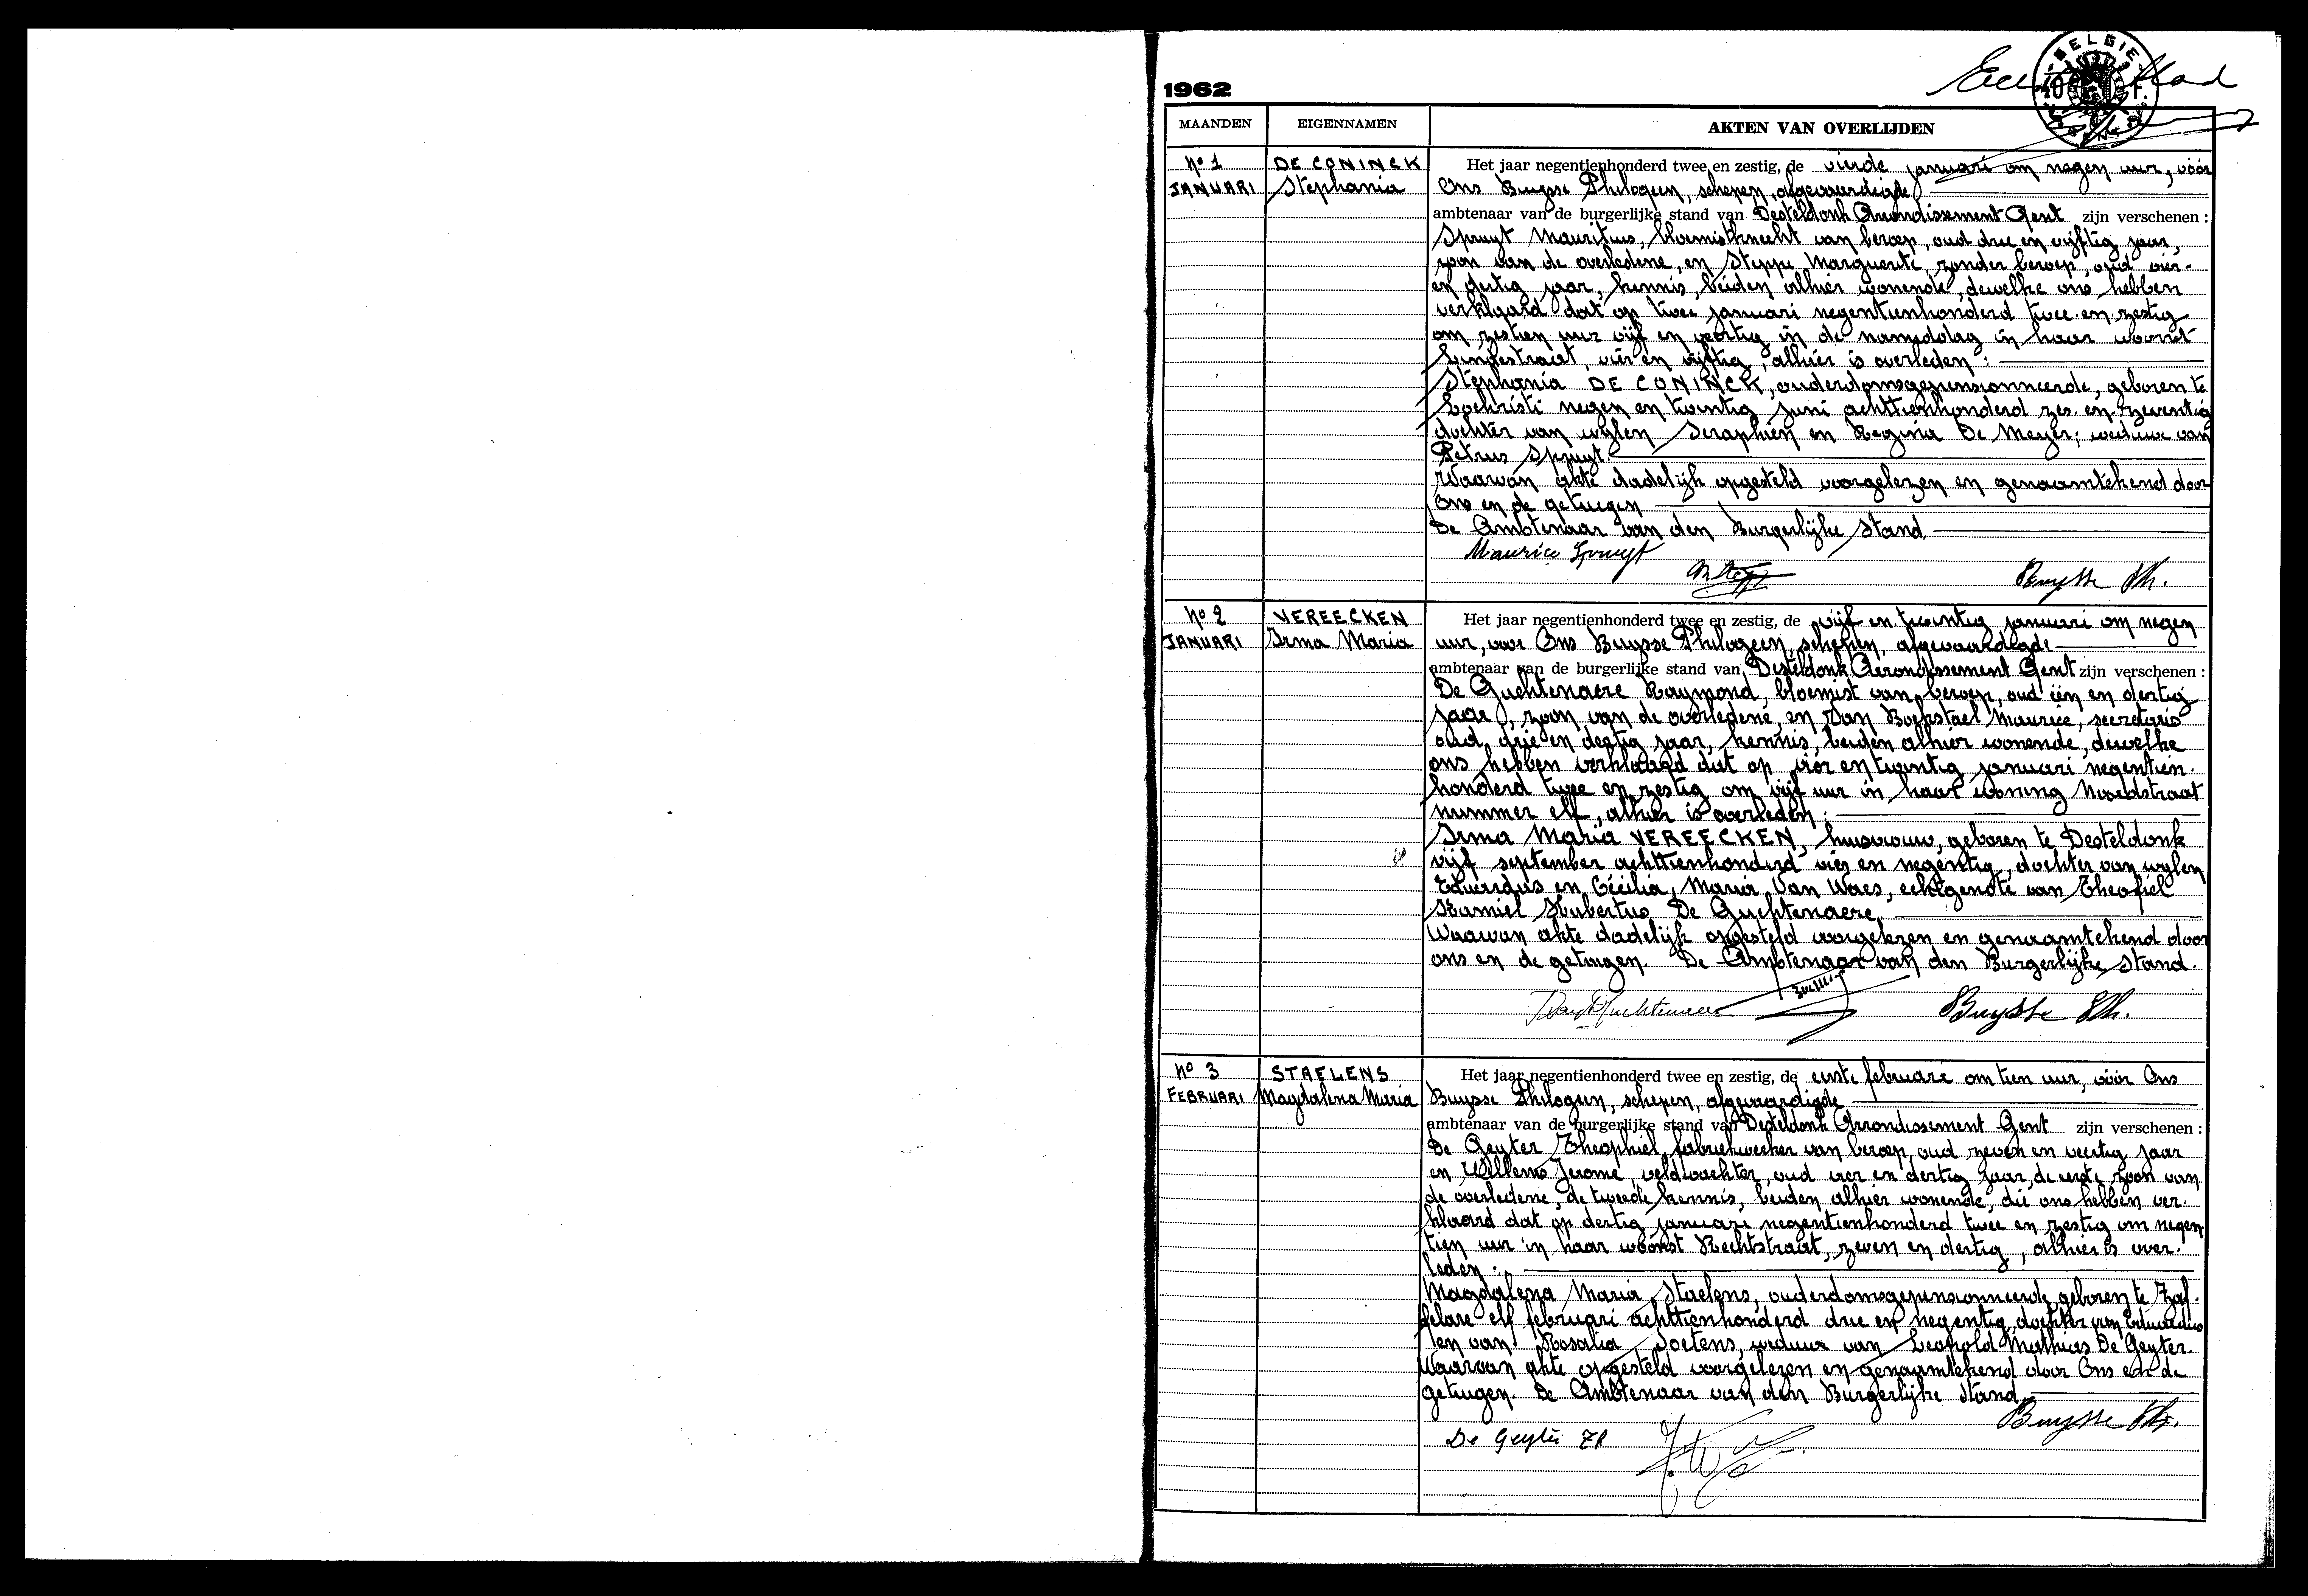 Eerste blad
BELGIE
1962
MAANDEN EIGENNAMEN AKTEN VAN OVERLIJDEN
No 1 DE CONINCK Het jaar negentienhonderd twee en zestig, de vierde januari om negen uur, vóór
JANUARI Stephania Ons Buysse Philogeen, schepen, afgevaardigde
ambtenaar van de burgerlijke stand van Desteldonk Arrondissement Gent zijn verschenen :
Spruyt Mauritius, bloemistknecht van beroep, oud drie en vijftig jaar,
zoon van de overledene, en Steppe Marguerite, zonder beroep, oud vier-
en dertig jaar, kennis, beiden alhier wonende, dewelke ons hebben
verklaard dat op twee januari negentienhonderd twee-en-zestig
om zestien uur vijf en veertig in de namiddag in haar woonst
vier en vijftig, alhier is overleden :
Stephania DE CONINCK, ouderdomsgepensionneerde, geboren te
Lochristi negen en twintig juni achttienhonderd zes-en-zeventig
dochter van wijlen Seraphien en Regina De Meyer, weduwe van
Petrus Spruyt.
Waarvan akte dadelijk opgesteld voorgelezen en genaamtekend door
Ons en de getuigen
De Ambtenaar van den Burgerlijke Stand
Maurice Spruyt
Buysse Ph.
No 2 VEREECKEN Het jaar negentienhonderd twee en zestig, de vijf en twintig januari om negen
JANUARI Irma Maria uur, voor Ons Buysse Philogeen, schepen, afgevaardigde
ambtenaar van de burgerlijke stand van Desteldonk Arrondissement Gent zijn verschenen :
De Guchtenaere Raymond, bloemist van beroep, oud één en dertig
jaar, zoon van de overledene, en Van Bockstael Maurice, secretaris
oud drie en dertig jaar, kennis, beiden alhier wonende, dewelke
ons hebben verklaard dat op vier en twintig januari negentien-
honderd twee en zestig om vijf uur in haar woning Noordstraat
nummer elf, alhier is overleden :
Irma Maria VEREECKEN, huisvrouw, geboren te Desteldonk
vijf september achttienhonderd vier en negentig, dochter van wijlen
Eduardus en Cécilia, Maria Van Waes, echtgenote van Theofiel
Kamiel Hubertus De Guchtenaere.
Waarvan akte dadelijk opgesteld voorgelezen en genaamtekend door
ons en de getuigen. De Ambtenaar van den Burgerlijke Stand.
Buysse Ph.
No 3 STAELENS Het jaar negentienhonderd twee en zestig, de eerste februari om tien uur, vóór Ons
FEBRUARI Magdalena Maria Buysse Philogeen, schepen, afgevaardigde
ambtenaar van de burgerlijke stand van Desteldonk Arrondissement Gent zijn verschenen :
De Geyter Theophiel, fabriekwerker van beroep, oud zeven en veertig jaar
en Willems Jerome, veldwachter, oud vier en dertig jaar, de eerste zoon van
de overledene, de tweede kennis, beiden alhier wonende, die ons hebben ver-
klaard dat op dertig januari negentienhonderd twee en zestig om negen-
tien uur in haar woonst Rechtstraat, zeven en dertig, alhier is over-
leden :
Magdalena Maria Staelens, ouderdomsgepensionneerde, geboren te Zaf-
felare elf februari achttienhonderd drie en negentig, dochter van Eduardus
en van Rosalia Soetens, weduwe van Leopold Mathias De Geyter.
Waarvan akte opgesteld voorgelezen en genaamtekend door Ons en de
getuigen. De Ambtenaar van den Burgerlijke Stand
Buysse Ph.
De Geyter